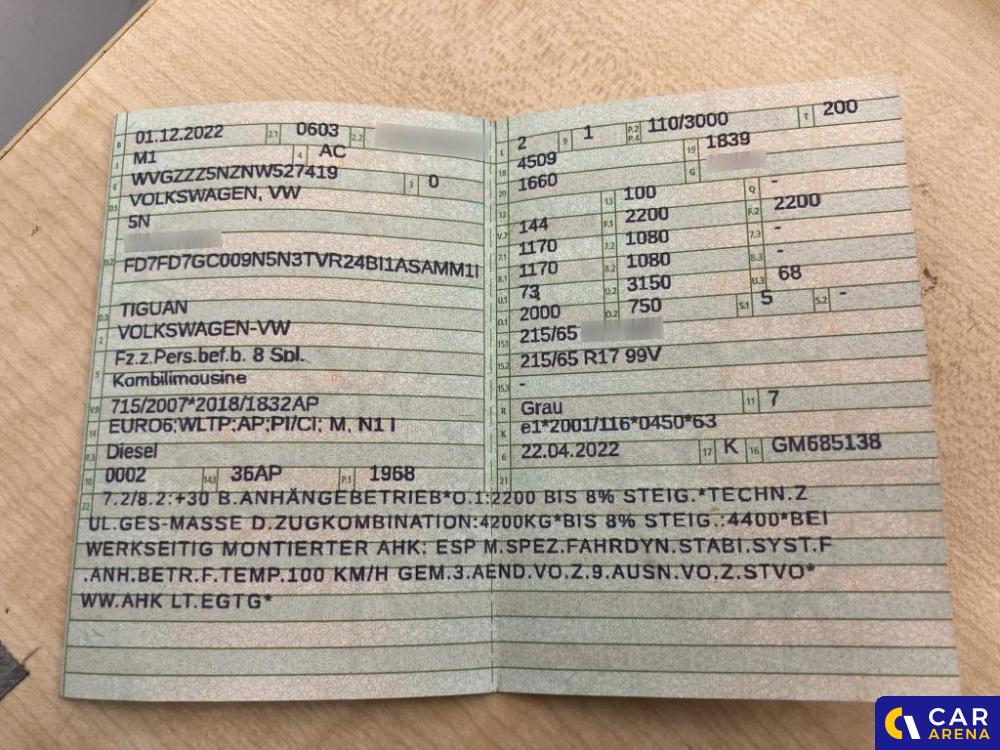 B 01.12.2022 2.1 0603 2.2
J M1 4 AC
E WVGZZZ5NZNW527419 3 0
D.1 VOLKSWAGEN, VW
5N
D.2 FD7FD7GC009N5N3TVR24BI1ASAMM1I
D.3 TIGUAN
2 VOLKSWAGEN-VW
5 Fz.z.Pers.bef.b. 8 Spl.
Kombilimousine
V.9 715/2007*2018/1832AP
14 EURO6;WLTP;AP;PI/CI; M, N1 I
P.3 Diesel
10 0002 14.1 36AP P.1 1968
L 2 9 1 P.2 P.4 110/3000 T 200
18 4509 19 1839
20 1660 G
12 13 100 Q -
V.7 144 F.1 2200 F.2 2200
7.1 1170 7.2 1080 7.3 -
8.1 1170 8.2 1080 8.3 -
U.1 73 U.2 3150 U.3 68
O.1 2000 O.2 750 S.1 5 S.2 -
15.1 215/65
15.2 215/65 R17 99V
15.3 -
R Grau 11 7
K e1*2001/116*0450*63
6 22.04.2022 17 K 16 GM685138
21
22 7.2/8.2:+30 B.ANHÄNGEBETRIEB*O.1:2200 BIS 8% STEIG.*TECHN.Z
UL.GES-MASSE D.ZUGKOMBINATION:4200KG*BIS 8% STEIG.:4400*BEI
WERKSEITIG MONTIERTER AHK: ESP M.SPEZ.FAHRDYN.STABI.SYST.F
.ANH.BETR.F.TEMP.100 KM/H GEM.3.AEND.VO.Z.9.AUSN.VO.Z.STVO*
WW.AHK LT.EGTG*
CAR
ARENA